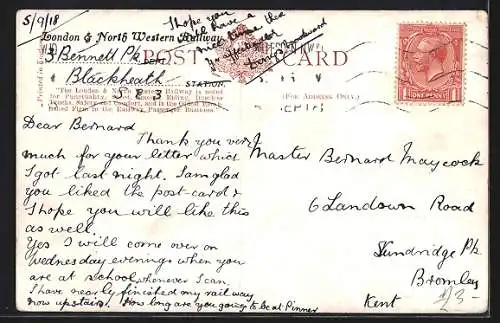 5/9/18
London & North Western Railway.
3 Bennett Pk
Blackheath
S E 3
POST CARD
DEPT.
STATION.
I hope you
will have a
nice time
Printed in
"The London & North Western Railway is noted
for Punctuality, Speed, Smooth Riding, Dustless
Tracks, Safety and Comfort, and is the Oldest Estab-
lished Firm in the Railway Passenger Business."
(FOR ADDRESS ONLY.)
ONE PENNY
Dear Bernard
Thank you very
much for your letter which
I got last night. I am glad
you liked the post-card &
I hope you will like this
as well.
Yes I will come over on
Wednesday evenings when you
are at school, whenever I can.
I have nearly finished my railway
now upstairs. How long are you going to be at Pinner
Master Bernard Maycock
6 Landown Road
Sundridge Pk
Bromley
Kent
£3-